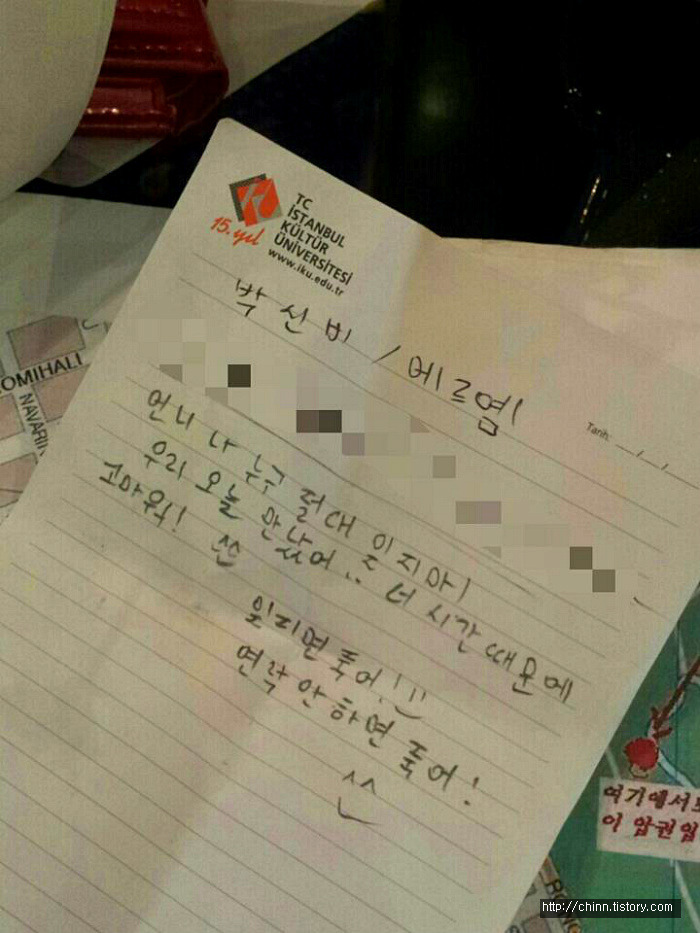 TC
İSTANBUL
KÜLTÜR
ÜNİVERSİTESİ
www.iku.edu.tr
15.yıl
박신비 / 메르염!
Tarih: __/__/__
언니 나 누구 절대 이지마!
우리 오늘 만났어.. 너 시간 때문에
고마워! 쓴
잊지면 죽어!
연락 안 하면 죽어!
^^
OMIHALI
NAVARIN
여기에서
이 압권임
http://chinn.tistory.com